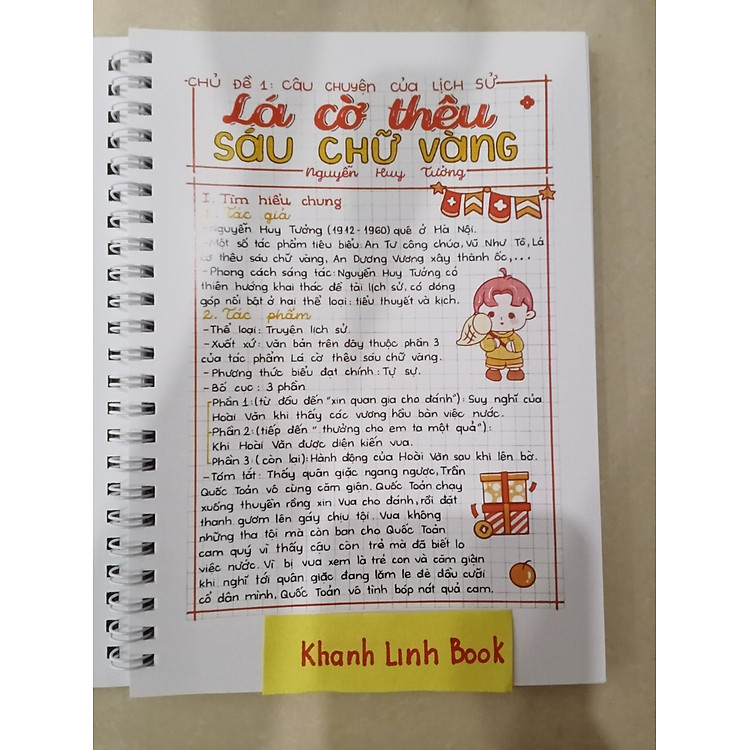 CHỦ ĐỀ 1: CÂU CHUYỆN CỦA LỊCH SỬ
Lá cờ thêu
SÁU CHỮ VÀNG
Nguyễn Huy Tưởng
I. Tìm hiểu chung
1. Tác giả
-Nguyễn Huy Tưởng (1912-1960) quê ở Hà Nội.
-Một số tác phẩm tiêu biểu: An Tư công chúa, Vũ Như Tô, Lá
cờ thêu sáu chữ vàng, An Dương Vương xây thành ốc,...
-Phong cách sáng tác: Nguyễn Huy Tưởng có
thiên hướng khai thác đề tài lịch sử, có đóng
góp nổi bật ở hai thể loại: tiểu thuyết và kịch.
2. Tác phẩm
-Thể loại: Truyện lịch sử.
-Xuất xứ: Văn bản trên đây thuộc phần 3
của tác phẩm Lá cờ thêu sáu chữ vàng.
-Phương thức biểu đạt chính: Tự sự.
-Bố cục: 3 phần
Phần 1: (từ đầu đến "xin quan gia cho đánh"): Suy nghĩ của
Hoài Văn khi thấy các vương hầu bàn việc nước.
Phần 2: (tiếp đến "thưởng cho em ta một quả"):
Khi Hoài Văn được diện kiến vua.
Phần 3: (còn lại): Hành động của Hoài Văn sau khi lên bờ.
-Tóm tắt: Thấy quân giặc ngang ngược, Trần
Quốc Toản vô cùng căm giận. Quốc Toản chạy
xuống thuyền rồng xin Vua cho đánh, rồi đặt
thanh gươm lên gáy chịu tội. Vua không
những tha tội mà còn ban cho Quốc Toản
cam quý vì thấy cậu còn trẻ mà đã biết lo
việc nước. Vì bị vua xem là trẻ con và căm giận
khi nghĩ tới quân giặc đang lăm le đè đầu cưỡi
cổ dân mình, Quốc Toản vô tình bóp nát quả cam.
Khanh Linh Book